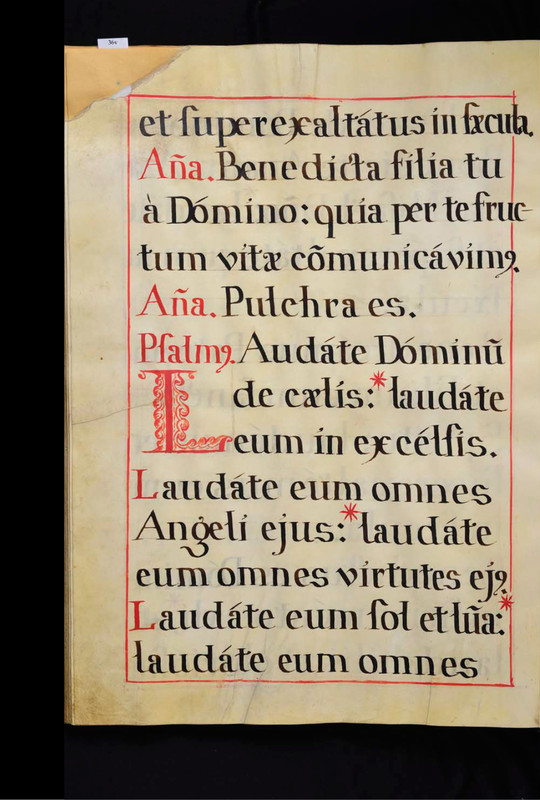 36v
et ſuperexaltátus in sæcula.
Aña. Benedicta filia tu
à Dómino: quia per te fruc-
tum vitæ cõmunicávimꝰ.
Aña. Pulchra es.
Pſalmꝰ. Audáte Dóminũ
L de cælis:* laudáte
eum in excélſis.
Laudáte eum omnes
Angeli ejus:* laudáte
eum omnes virtutes ejꝰ.
Laudáte eum ſol et lũa:*
laudáte eum omnes